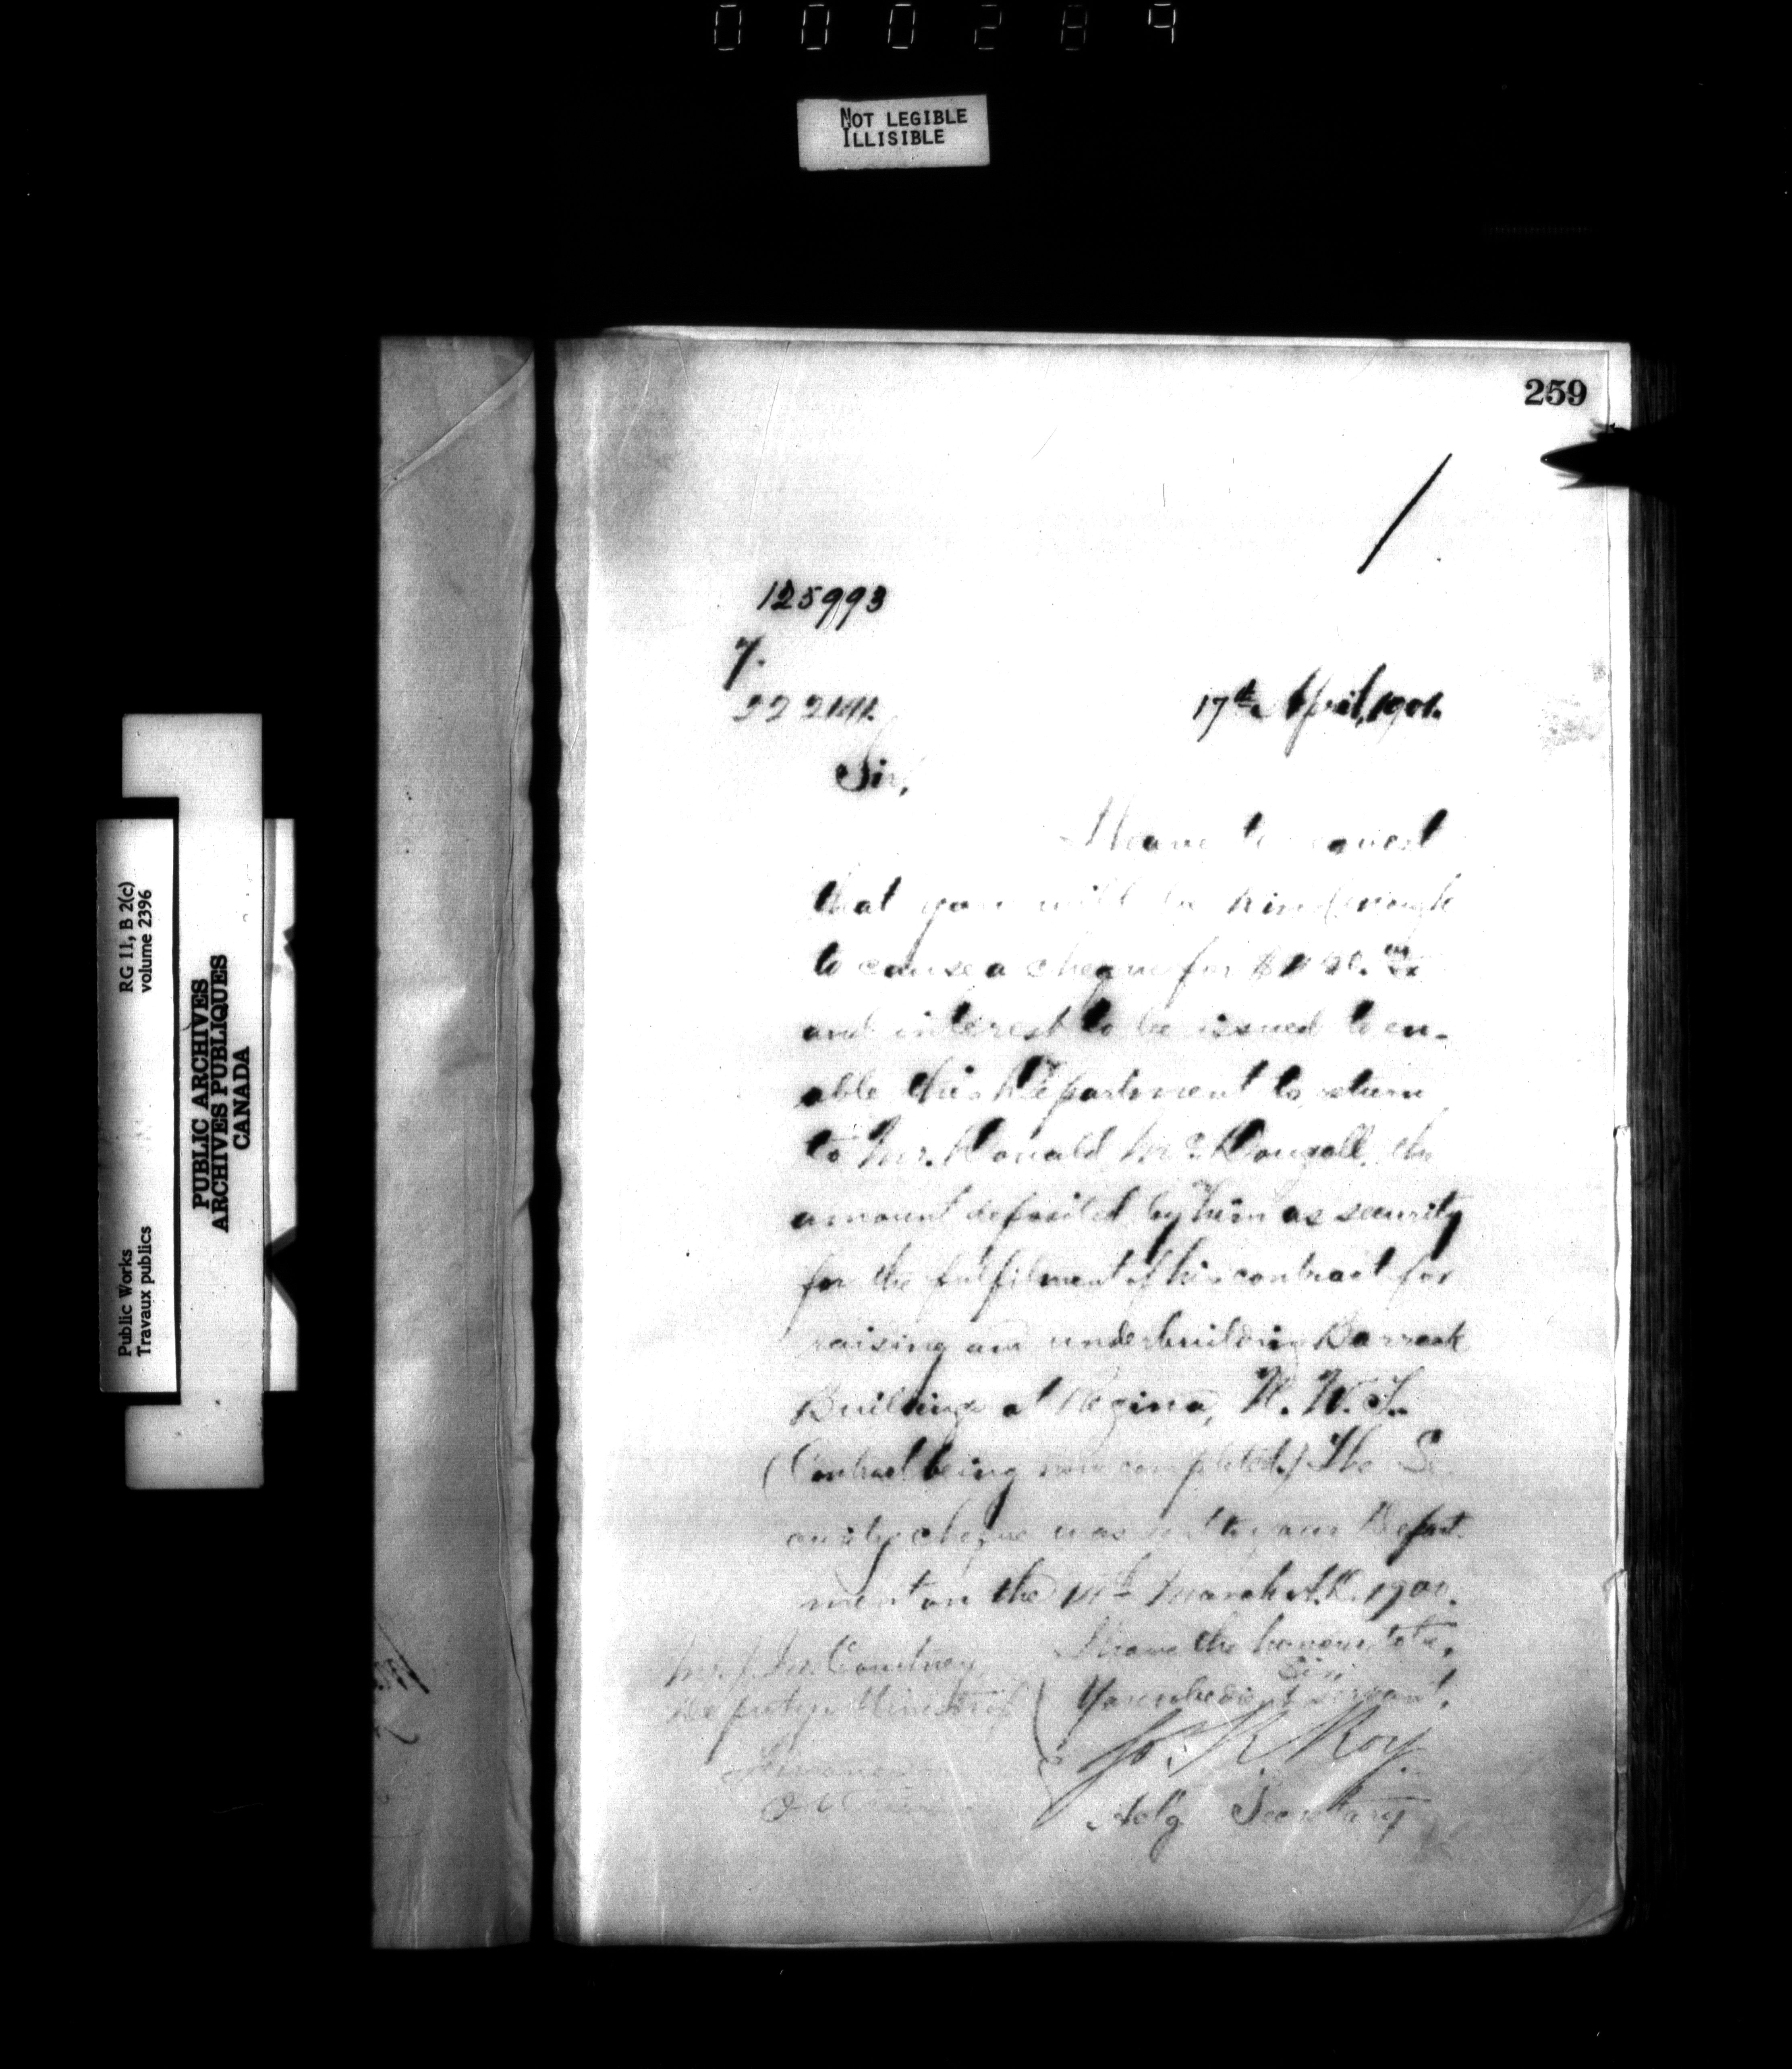 000289
NOT LEGIBLE
ILLISIBLE
259
125993
7.
17th April, 1901.
Sir,
I have to request
that you will be kind enough
to cause a cheque for
and interest to be issued to en-
able this Department to return
to Mr. Donald McDougall, the
amount deposited by him as security
for the fulfilment of his contract for
raising and underbuilding Barrack
Buildings at Regina, N. W. T.
(Contract being now completed.) The Se-
curity cheque was sent to your Depart-
ment on the March A.D. 1900.
I have the honour to be,
Sir,
Your obedient servant,
Jos. R. Roy.
Actg Secretary
Mr. J. M. Courtney
Deputy Minister of
Finance
Ottawa
Public Works
Travaux publics
RG 11, B 2(c)
volume 2396
PUBLIC ARCHIVES
ARCHIVES PUBLIQUES
CANADA